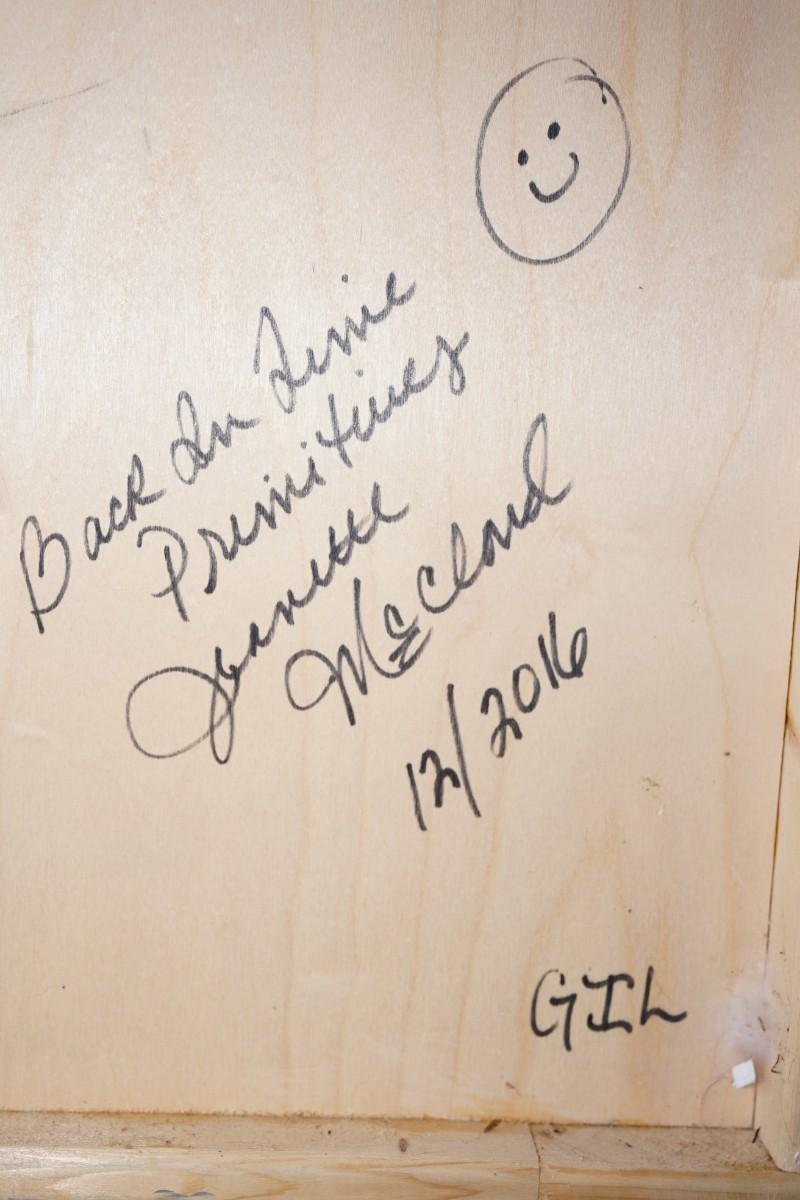 Back In Time
Primitives
Jeanette
McCloud
12/2016
GIL